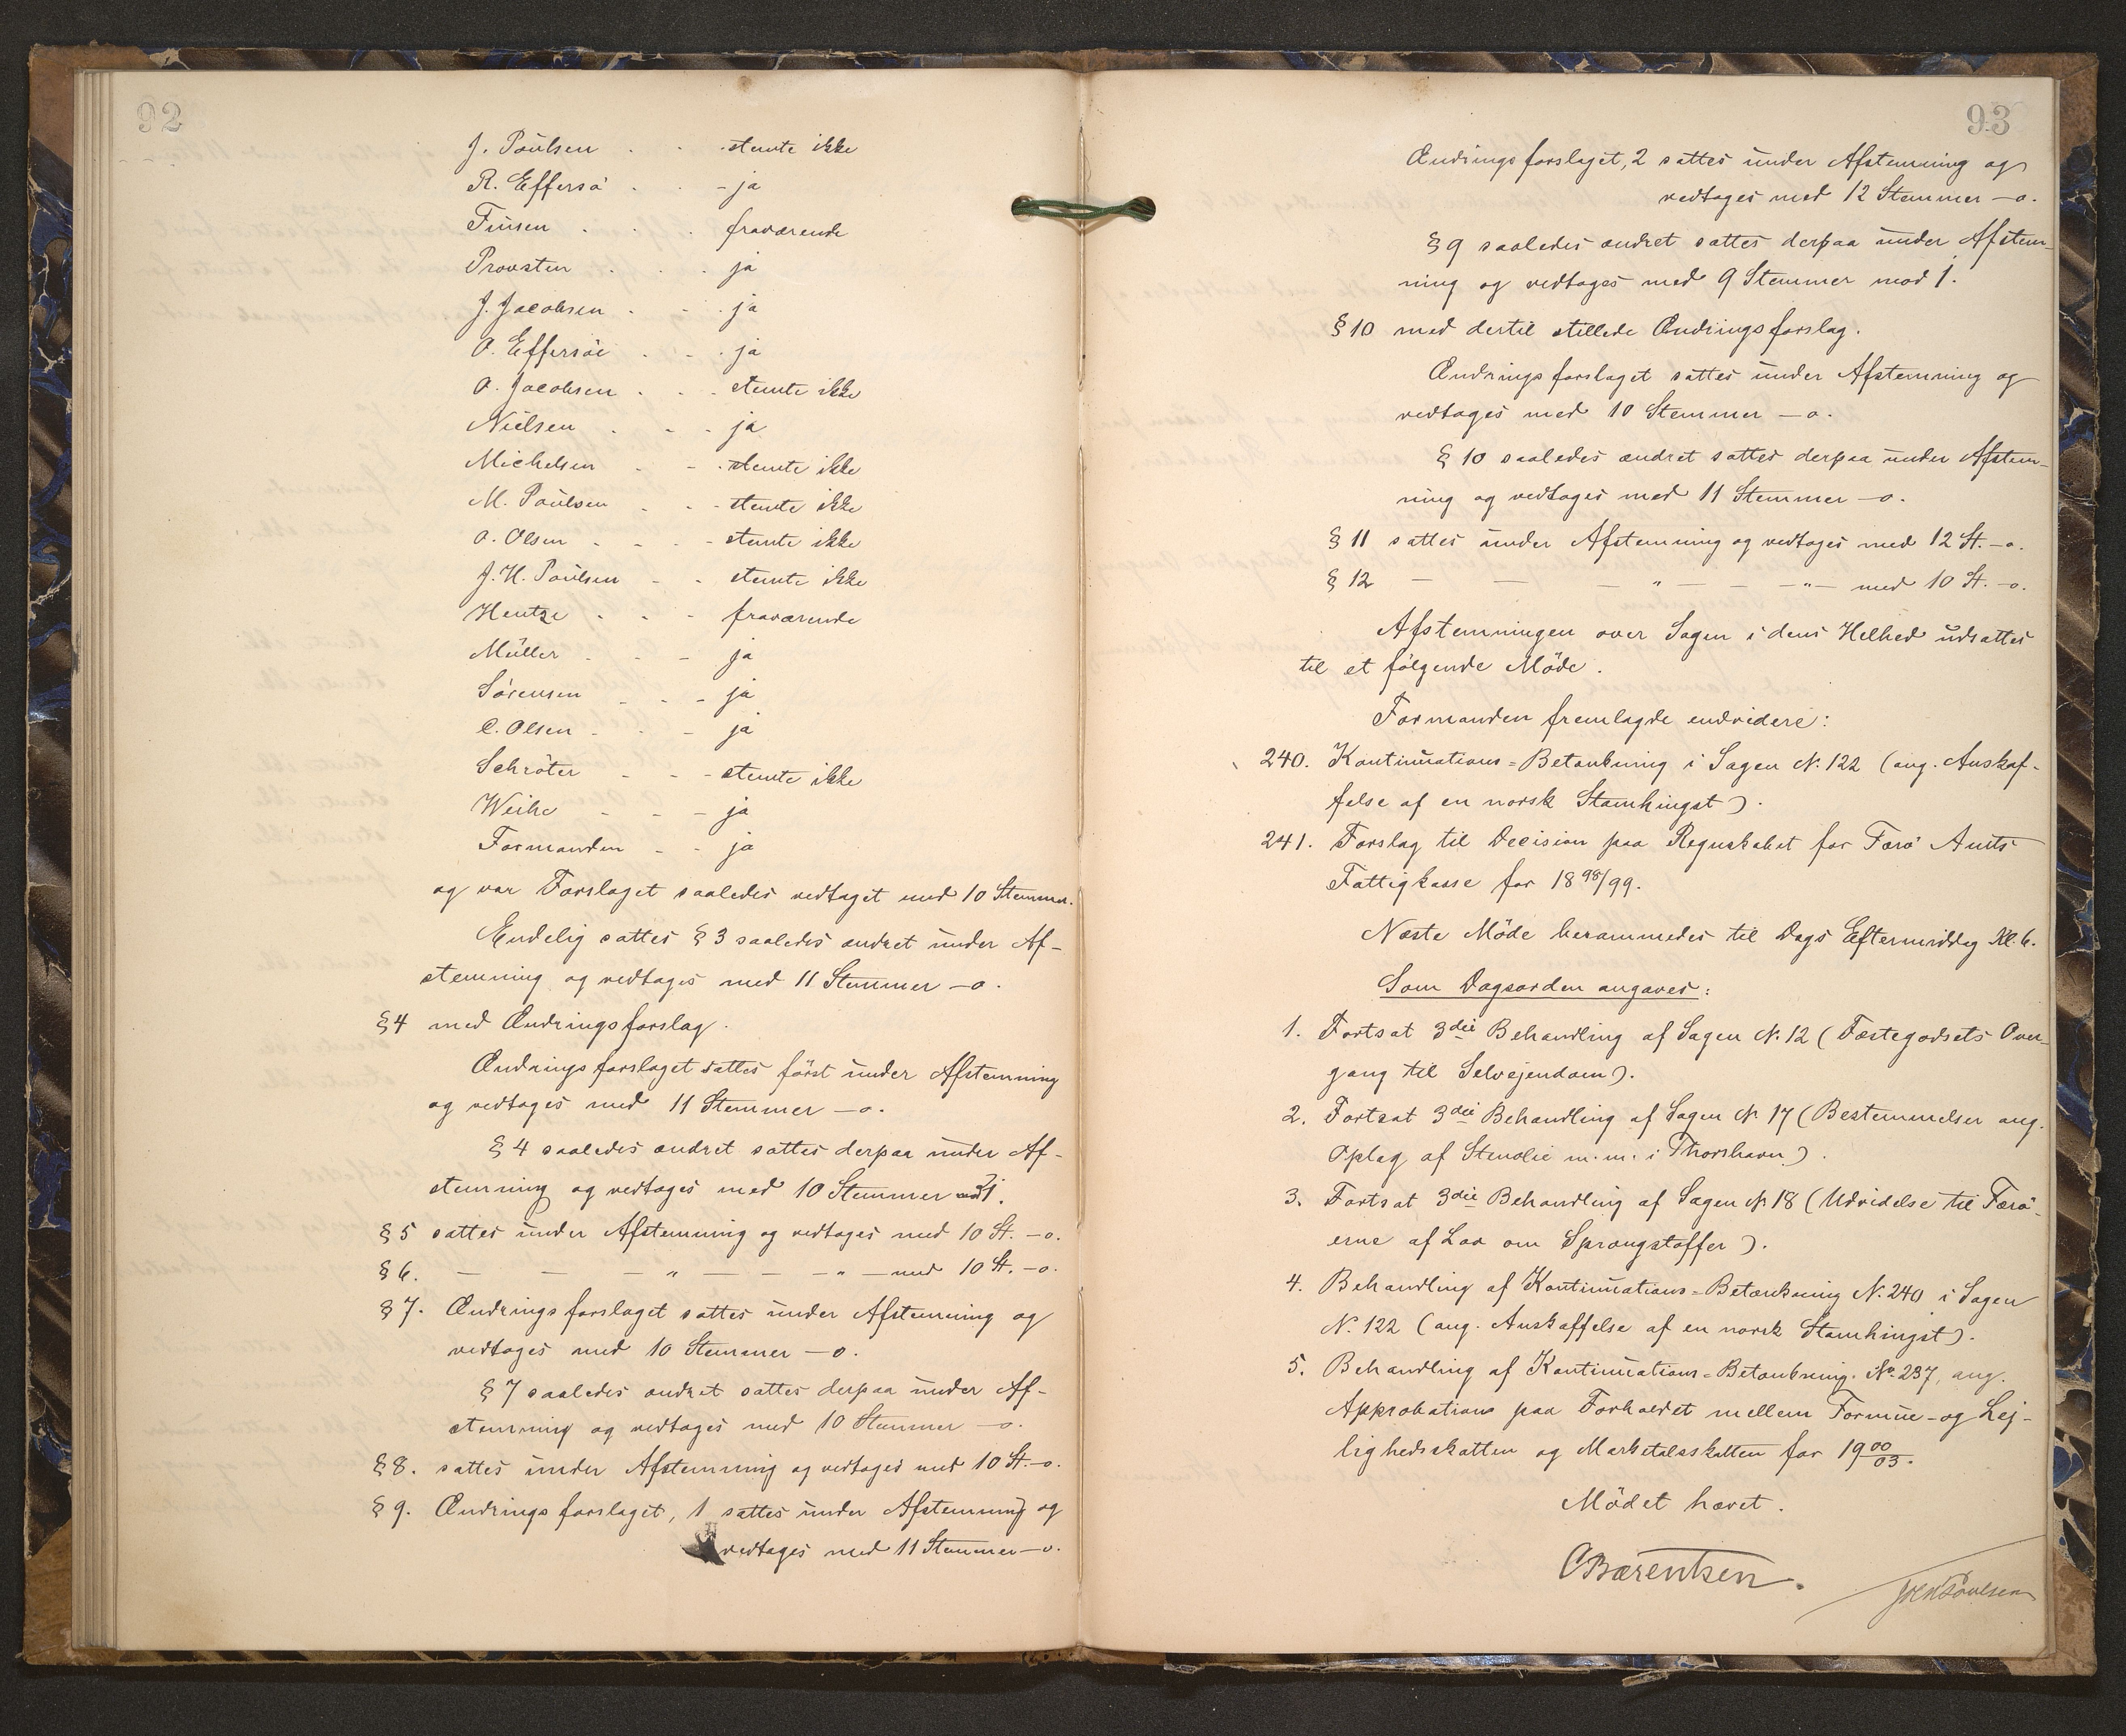 92
J. Poulsen . . . stemte ikke
R. Effersö . . - ja
Finsen . . . fraværende
Provsten . . . ja
J. Jacobsen . . . ja
O. Effersöe . - . ja
O. Jacobsen . . - stemte ikke
Nielsen . - . ja
Michelsen . - . stemte ikke
M. Poulsen . - - stemte ikke
O. Olsen - - - - stemte ikke
J. H. Poulsen - - stemte ikke
Hentze . . - fraværende
Müller . - - ja
Sörensen - - - ja
C. Olsen - - - ja
Schröter - - - stemte ikke
Weihe - - - ja
Formanden - - ja
og var Forslaget saaledes vedtaget med 10 Stemmer.
Endelig sattes § 3 saaledes ændret under Af-
stemning og vedtoges med 11 Stemmer - o.
§ 4 med Ændringsforslag.
Ændringsforslaget sattes först under Afstemning
og vedtoges med 11 Stemmer - o.
§ 4 saaledes ændret sattes derpaa under Af-
stemning og vedtoges med 10 Stemmer mod 1.
§ 5 sattes under Afstemning og vedtoges med 10 St. - o.
§ 6. — — — " — — — " — med 10 St. - o.
§ 7. Ændringsforslaget sattes under Afstemning og
vedtoges med 10 Stemmer - o.
§ 7 saaledes ændret sattes derpaa under Af-
stemning og vedtoges med 10 Stemmer - o.
§ 8. sattes under Afstemning og vedtoges med 10 St. - o.
§ 9. Ændringsforslaget, 1 sattes under Afstemning og
vedtoges med 11 Stemmer - o.
93
Ændringsforslaget, 2 sattes under Afstemning og
vedtoges med 12 Stemmer - o.
§ 9 saaledes ændret sattes derpaa under Afstem-
ning og vedtoges med 9 Stemmer mod 1.
§ 10 med dertil stillede Ændringsforslag.
Ændringsforslaget sattes under Afstemning og
vedtoges med 10 Stemmer - o.
§ 10 saaledes ændret sattes derpaa under Afstem-
ning og vedtoges med 11 Stemmer - o.
§ 11 sattes under Afstemning og vedtoges med 12 St. - o.
§ 12 — — — " — — — " — med 10 St. - o.
Afstemningen over Sagen i dens Helhed udsattes
til et fölgende Möde.
Formanden fremlagde endvidere:
240. Kontinuations=Betænkning i Sagen N. 122 (ang. Anskaf-
felse af en norsk Stamhingst).
241. Forslag til Decision paa Regnskabet for Færö Amts
Fattigkasse for 18 98/99.
Næste Möde berammedes til Dags Eftermiddag Kl. 6.
Som Dagsorden angaves:
1. Fortsat 3die Behandling af Sagen N. 12 (Fæstegodsets Over-
gang til Selvejendom).
2. Fortsat 3die Behandling af Sagen N. 17 (Bestemmelser ang.
Oplag af Stenolie m. m. i Thorshavn).
3. Fortsat 3die Behandling af Sagen N. 18 (Udvidelse til Færö-
erne af Lov om Sprængstoffer).
4. Behandling af Kontinuations=Betænkning N. 240 i Sagen
N. 122 (ang. Anskaffelse af en norsk Stamhingst).
5. Behandling af Kontinuations=Betænkning No 237, ang.
Approbation paa Forholdet mellem Formue- og Lej-
lighedsskatten og Marketalsskatten for 19 00/03.
Mödet hævet.
CBærentsen.
JHPoulsen